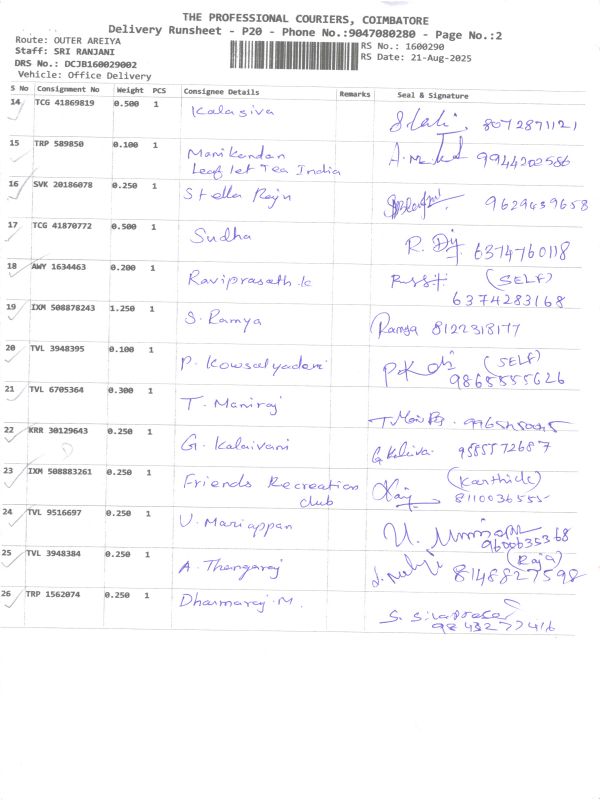 THE PROFESSIONAL COURIERS, COIMBATORE
Delivery Runsheet - P20 - Phone No.:9047080280 - Page No.:2
Route: OUTER AREIYA
RS No.: 1600290
Staff: SRI RANJANI
RS Date: 21-Aug-2025
DRS No.: DCJB160029002
Vehicle: Office Delivery
S No Consignment No Weight PCS Consignee Details Remarks Seal & Signature
14 TCG 41869819 0.500 1 Kalasiva 8072871121
15 TRP 589850 0.100 1 Manikandan 9944202586
Leaf let Tea India
16 SVK 20186078 0.250 1 Stella Raju 9629439658
17 TCG 41870772 0.500 1 Sudha R. 6374760118
18 AWY 1634463 0.200 1 Raviprasath.k (SELF)
6374283168
19 IXM 508878243 1.250 1 S. Ramya Ramya 8122318177
20 TVL 3948395 0.100 1 P. Kowsalyadevi (SELF)
9865555626
21 TVL 6705364 0.300 1 T. Maniraj
22 KRR 30129643 0.250 1 G. Kalaivani 9585572687
23 IXM 508883261 0.250 1 Friends Recreation (Karthick)
club 8110036555
24 TVL 9516697 0.250 1 U. Mariappan U.
9600635368
25 TVL 3948384 0.250 1 A. Thangaraj (Raja)
8148827598
26 TRP 1562074 0.250 1 Dharmaraj.M. S.
9843277416